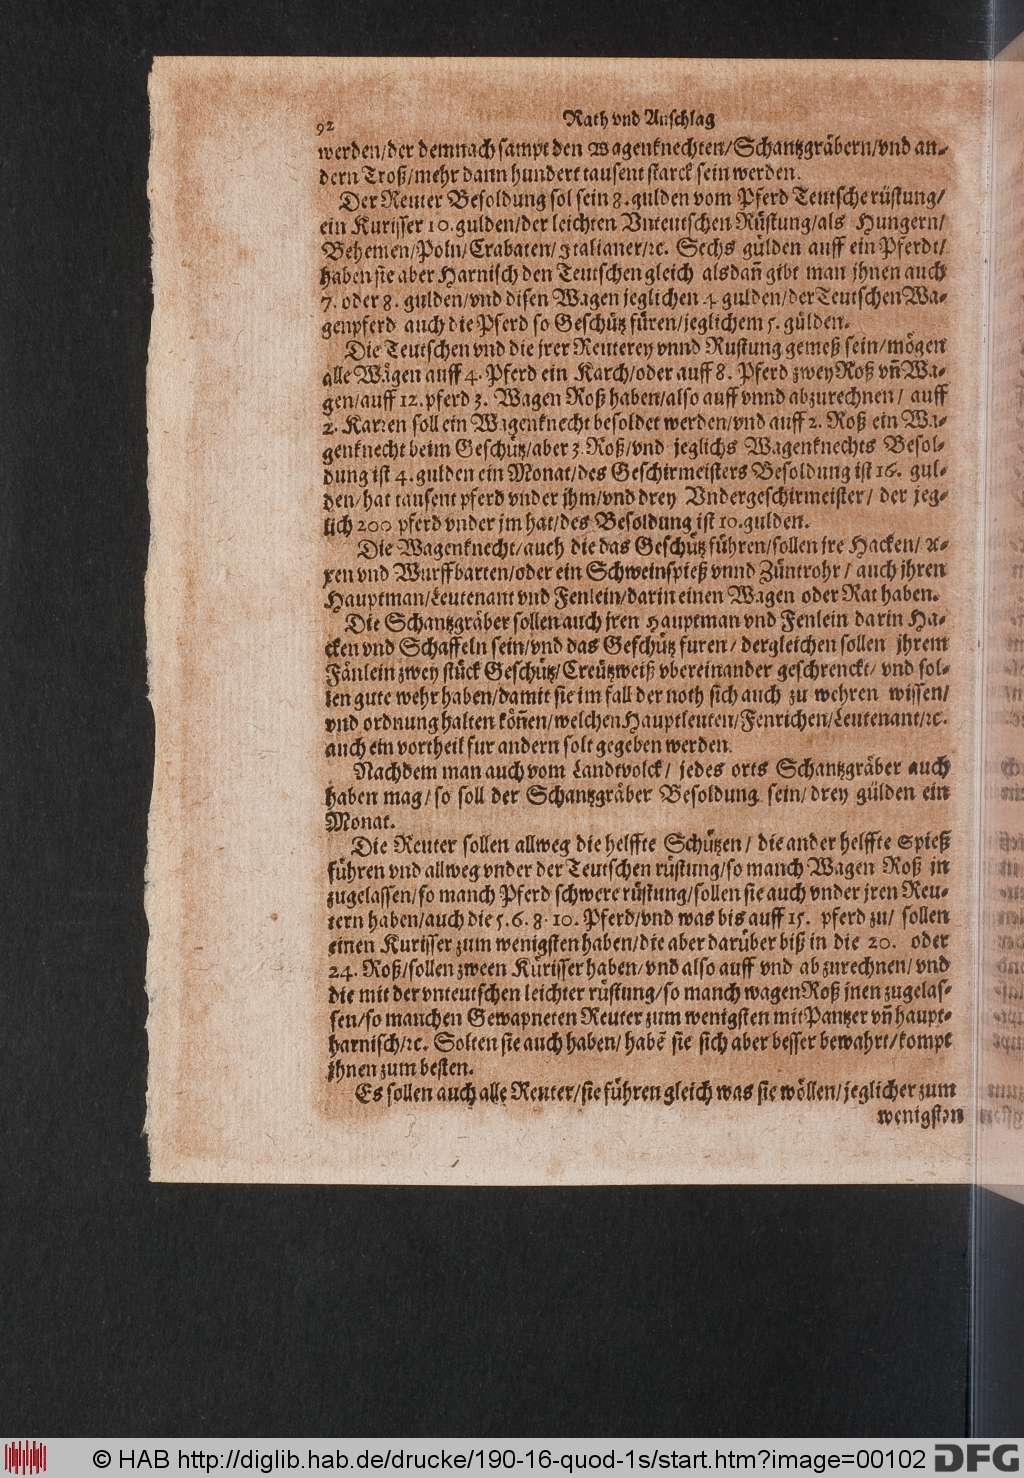 92
Rath vnd Anschlag
werden/der demnach sampt den Wagenknechten/Schantzgräbern/vnd an-
dern Troß/mehr dann hundert tausent starck sein werden.
Der Reuter Besoldung sol sein 8. gulden vom Pferd Teutsche rüstung/
ein Kurisser 10. gulden/der leichten Vnteutschen Rüstung/als Hungern/
Behemen/Poln/Crabaten/Italianer/ꝛc. Sechs gülden auff ein Pferdt/
haben sie aber Harnisch den Teutschen gleich alsdañ gibt man jhnen auch
7. oder 8. gulden/vnd disen Wagen jeglichen 4 gulden/der Teutschen Wa-
genpferd auch die Pferd so Geschütz füren/jeglichem 5. gülden.
Die Teutschen vnd die jrer Reuterey vnnd Rustung gemeß sein/mögen
alle Wägen auff 4. Pferd ein Karch/oder auff 8. Pferd zwey Roß vñ Wa-
gen/auff 12. pferd 3. Wagen Roß haben/also auff vnnd abzurechnen/ auff
2. Karren soll ein Wagenknecht besoldet werden/vnd auff 2. Roß ein Wa-
genknecht beim Geschütz/aber 3. Roß/vnd jeglichs Wagenknechts Besol-
dung ist 4. gulden ein Monat/des Geschirmeisters Besoldung ist 16. gul-
den/hat tausent pferd vnder ihm/vnd drey Vndergeschirmeister/ der jeg-
lich 200 pferd vnder jm hat/des Besoldung ist 10. gulden.
Die Wagenknecht/auch die das Geschütz führen/sollen jre Hacken/ Ax-
xen vnd Wurffbarten/oder ein Schweinspieß vnnd Züntrohr/ auch jhren
Hauptman/Leutenant vnd Fenlein/darin einen Wagen oder Rat haben.
Die Schantzgräber sollen auch jren Hauptman vnd Fenlein darin Ha-
cken vnd Schaffeln sein/vnd das Geschütz furen/ dergleichen sollen jhrem
Fänlein zwey stück Geschütz/Creützweiß vbereinander geschrenckt/ vnd sol-
len gute wehr haben/damit sie im fall der noth sich auch zu wehren wissen/
vnd ordnung halten köñen/welchen Hauptleuten/Fenrichen/Leutenant/ꝛc.
auch ein vortheil fur andern solt gegeben werden.
Nachdem man auch vom Landtvolck/ jedes orts Schantzgräber auch
haben mag/so soll der Schantzgräber Besoldung sein/drey gülden ein
Monat.
Die Reuter sollen allweg die helffte Schützen/ die ander helffte Spieß
führen vnd allweg vnder der Teutschen rüstung/so manch Wagen Roß jn
zugelassen/so manch Pferd schwere rüstung/sollen sie auch vnder jren Reu-
tern haben/auch die 5. 6. 8. 10. Pferd/vnd was bis auff 15. pferd zu/ sollen
einen Kurisser zum wenigsten haben/die aber darüber biß in die 20. oder
24. Roß/sollen zween Kürisser haben/vnd also auff vnd ab zurechnen/vnd
die mit der vnteutschen leichter rüstung/so manch wagen Roß jnen zugelas-
sen/so manchen Gewapneten Reuter zum wenigsten mit Pantzer vñ haupt-
harnisch/ꝛc. Solten sie auch haben/ habẽ sie sich aber besser bewahrt/kompt
jhnen zum besten.
Es sollen auch alle Reuter/sie führen gleich was sie wöllen/jeglicher zum
wenigsten
© HAB http://diglib.hab.de/drucke/190-16-quod-1s/start.htm?image=00102
DFG